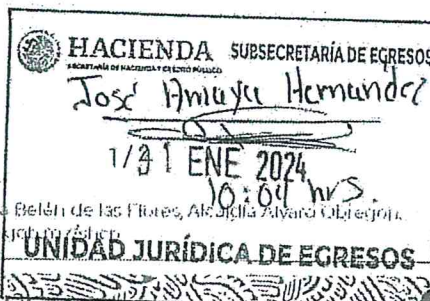 HACIENDA SUBSECRETARÍA DE EGRESOS
SECRETARÍA DE HACIENDA Y CRÉDITO PÚBLICO
José Amaya Hernandez
1/31 ENE 2024
10:04 hrs.
Belén de las Flores, Alcaldía Álvaro Obregón,
UNIDAD JURÍDICA DE EGRESOS